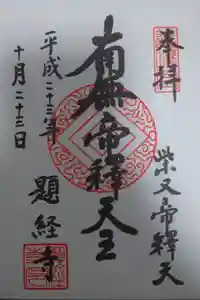 奉拝
柴又帝釋天
南無帝釋天王
平成二十三年
題経寺
十月二十三日